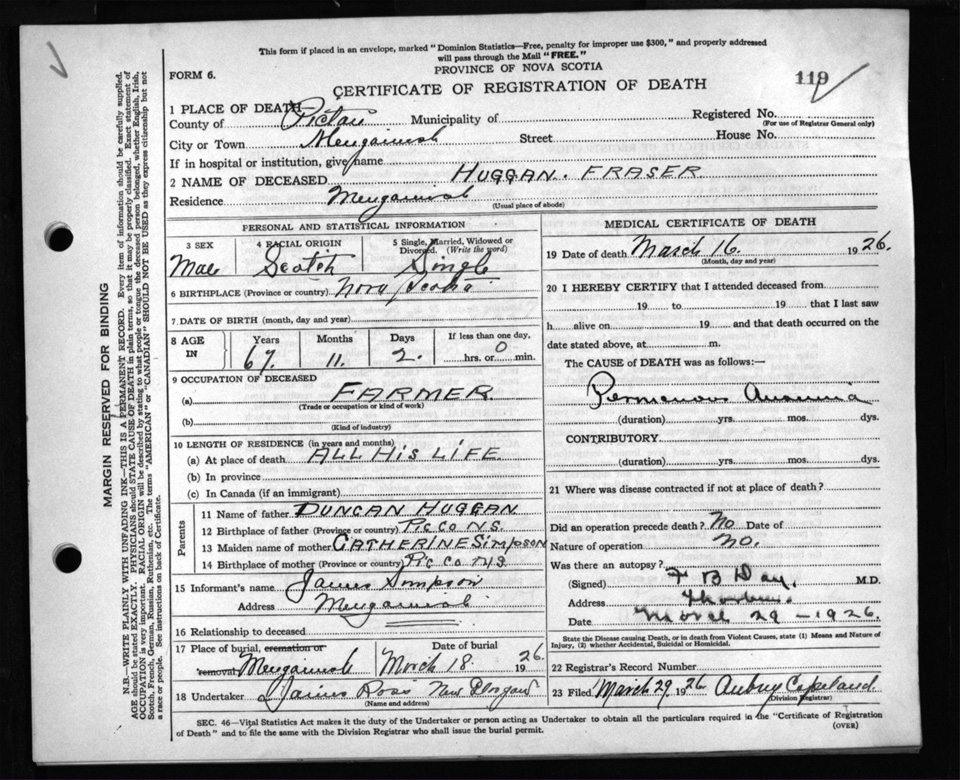 This form if placed in an envelope, marked "Dominion Statistics—Free, penalty for improper use $300," and properly addressed
will pass through the Mail "FREE."
PROVINCE OF NOVA SCOTIA
FORM 6.
CERTIFICATE OF REGISTRATION OF DEATH
119
1 PLACE OF DEATH
County of Pictou Municipality of Registered No.
(For use of Registrar General only)
City or Town Merigomish Street House No.
If in hospital or institution, give name
2 NAME OF DECEASED HUGGAN. FRASER
Residence Merigomish
(Usual place of abode)
PERSONAL AND STATISTICAL INFORMATION
3 SEX 4 RACIAL ORIGIN 5 Single, Married, Widowed or Divorced. (Write the word)
Male Scotch Single
6 BIRTHPLACE (Province or country) Nova Scotia
7 DATE OF BIRTH (month, day and year)
8 AGE IN Years Months Days If less than one day,
67. 11. 2. hrs. or 0 min.
9 OCCUPATION OF DECEASED
(a) FARMER.
(Trade or occupation or kind of work)
(b)
(Kind of industry)
10 LENGTH OF RESIDENCE (in years and months)
(a) At place of death ALL HIS LIFE
(b) In province
(c) In Canada (if an immigrant)
Parents
11 Name of father DUNCAN HUGGAN
12 Birthplace of father (Province or country) PIC CO N.S.
13 Maiden name of mother CATHERINE SIMPSON
14 Birthplace of mother (Province or country) PIC CO. N.S.
15 Informant's name James Simpson
Address Merigomish
16 Relationship to deceased
17 Place of burial, cremation or removal Date of burial
Merigomish March 18. 1926
18 Undertaker James Ross New Glasgow
(Name and address)
MEDICAL CERTIFICATE OF DEATH
19 Date of death March 16. 1926.
(Month, day and year)
20 I HEREBY CERTIFY that I attended deceased from
19 to 19 that I last saw
h alive on 19 and that death occurred on the
date stated above, at m.
The CAUSE OF DEATH was as follows:—
Pernicious Anaemia
(duration) yrs. mos. dys.
CONTRIBUTORY
(duration) yrs. mos. dys.
21 Where was disease contracted if not at place of death?
Did an operation precede death? No Date of
Nature of operation No.
Was there an autopsy?
(Signed) F B Day. M.D.
Address Thorburn
Date March 29 - 1926.
State the Disease causing Death, or in death from Violent Causes, state (1) Means and Nature of
Injury, (2) whether Accidental, Suicidal or Homicidal.
22 Registrar's Record Number
23 Filed March 29. 1926 Aubrey Copeland.
Division Registrar
SEC. 46—Vital Statistics Act makes it the duty of the Undertaker or person acting as Undertaker to obtain all the particulars required in the "Certificate of Registration
of Death" and to file the same with the Division Registrar who shall issue the burial permit.
(OVER)
MARGIN RESERVED FOR BINDING
N.B.—WRITE PLAINLY WITH UNFADING INK—THIS IS A PERMANENT RECORD. Every item of information should be carefully supplied.
AGE should be stated EXACTLY. PHYSICIANS should STATE CAUSE OF DEATH in plain terms, so that it may be properly classified. Exact statement of
OCCUPATION is very important. RACIAL ORIGIN will be described by stating to what people or tongue the deceased person belonged, whether English, Irish,
Scotch, French, German, Russian, Ruthenian, etc. The terms "AMERICAN" or "CANADIAN" SHOULD NOT BE USED as they express citizenship but not
a race or people. See instructions on back of Certificate.